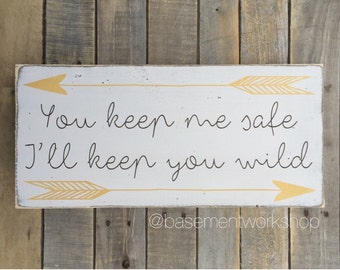 You keep me safe
I'll keep you wild
@basementworkshop